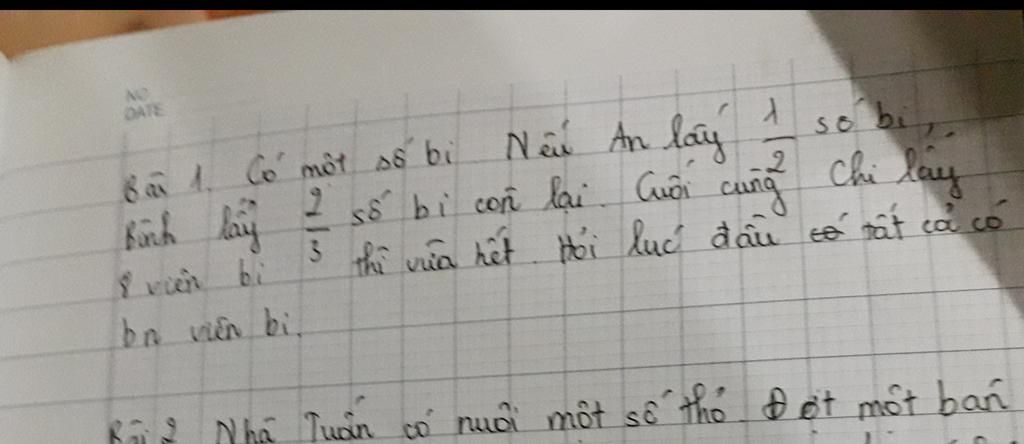 NO
DATE
Bài 1. Có một số bi Nếu An lấy 1/2 số bi,
Bình lấy 2/3 số bi còn lại. Cuối cùng Chi lấy
8 viên bi thì vừa hết. Hỏi lúc đầu có tất cả có
bn viên bi.
Bài 2 Nhà Tuấn có nuôi một số thỏ. Đợt một bán